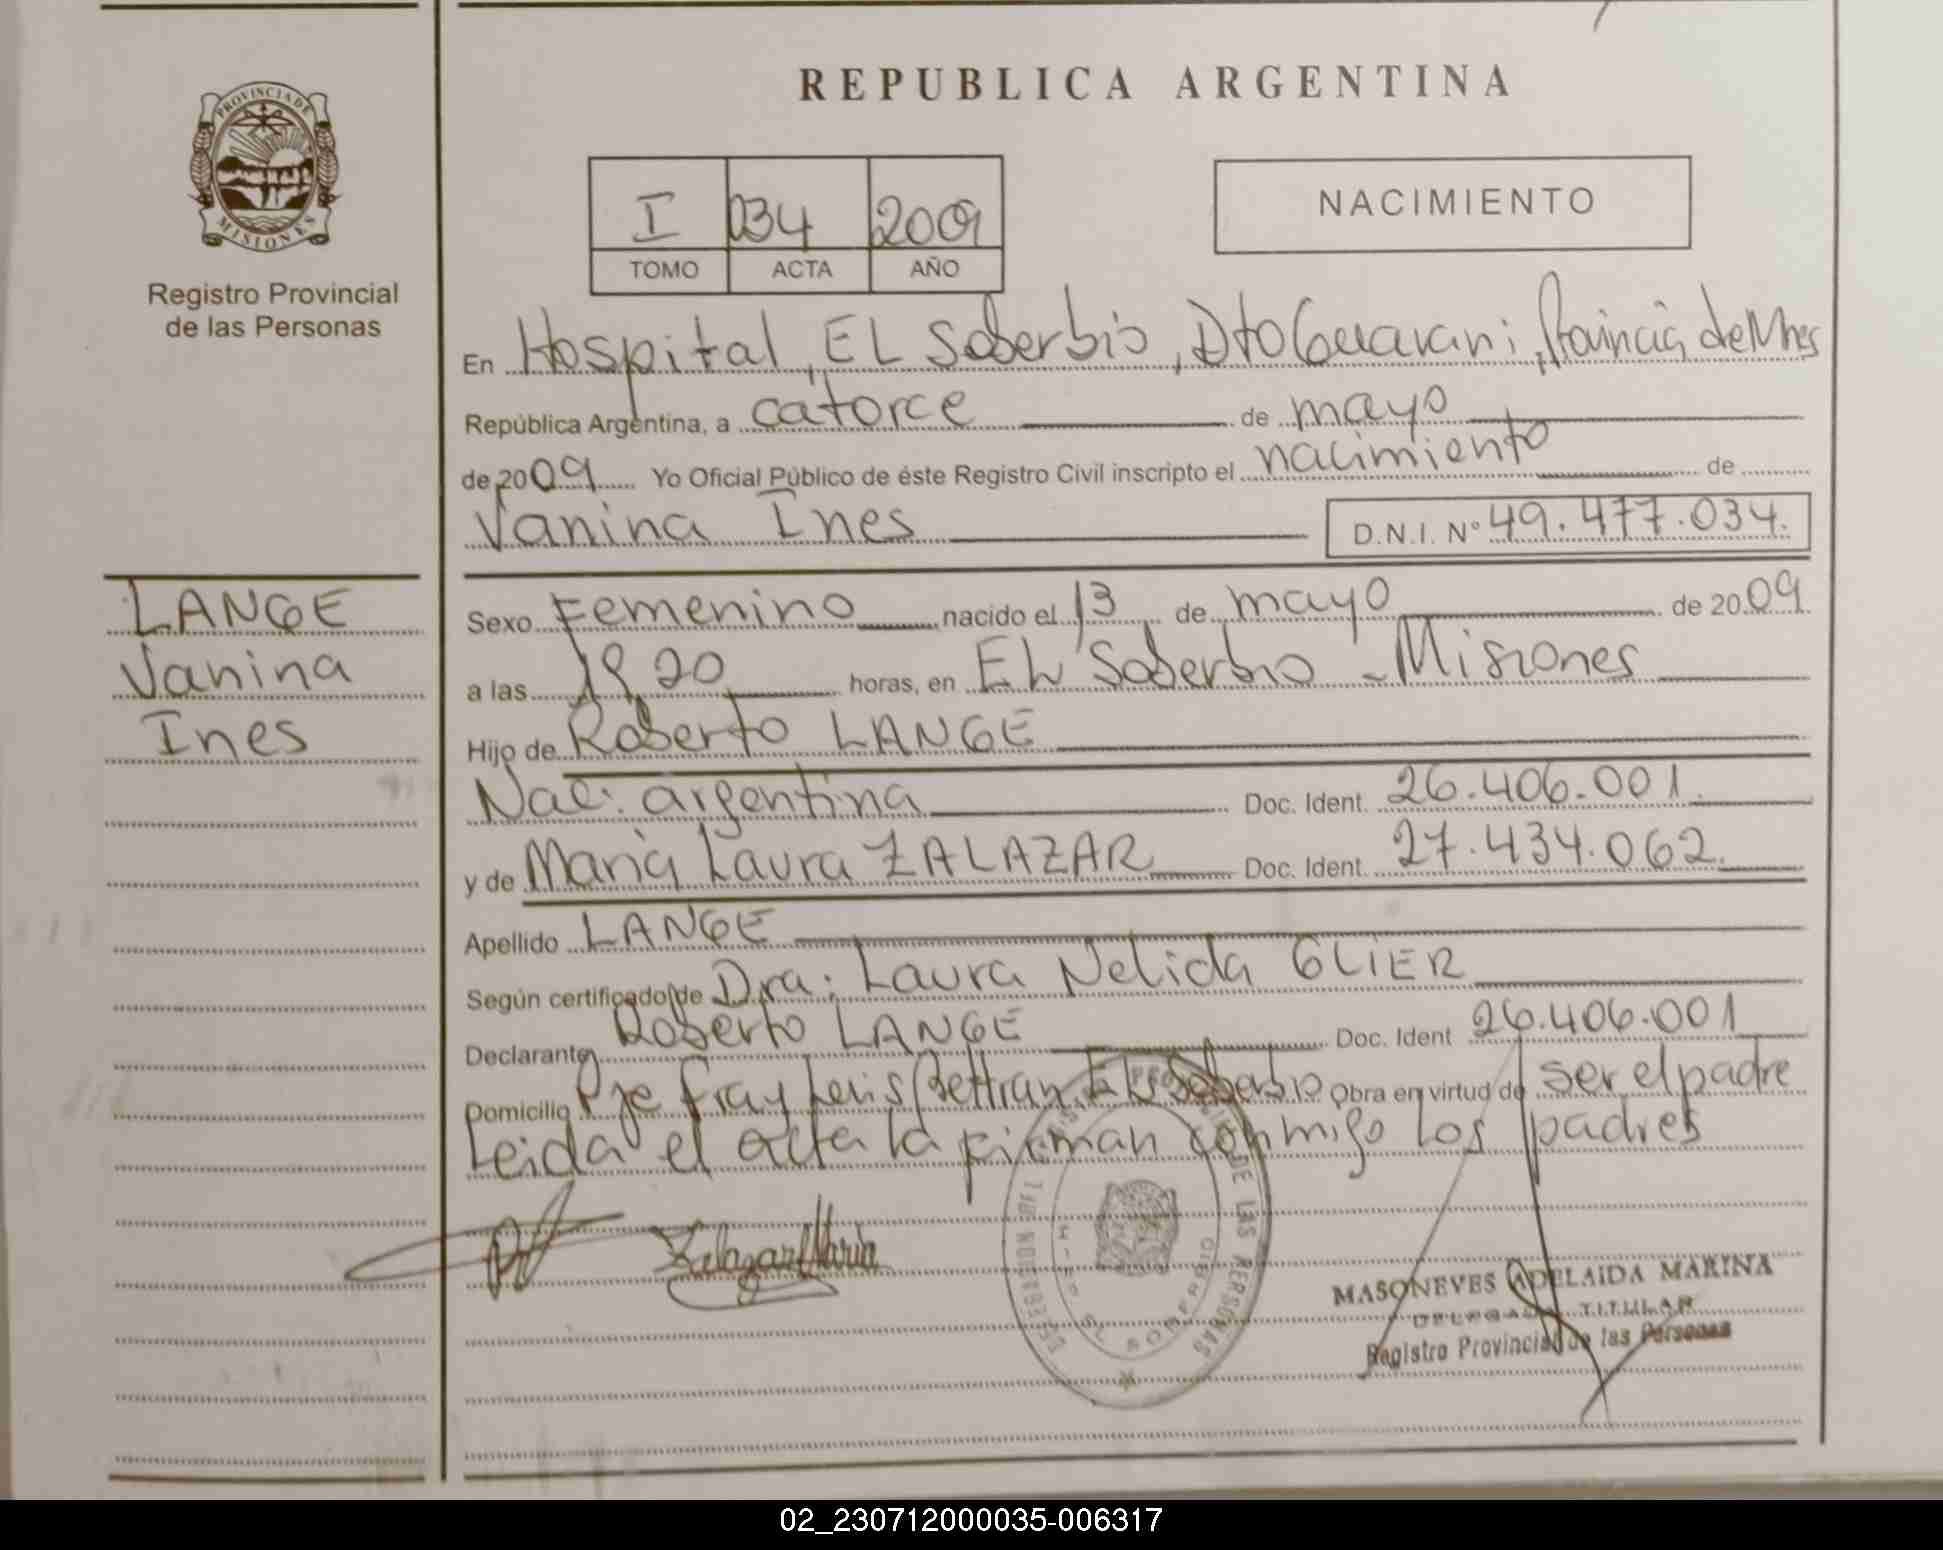 REPUBLICA ARGENTINA
PROVINCIA DE
MISIONES
Registro Provincial
de las Personas
I 034 2009
TOMO ACTA AÑO
NACIMIENTO
En Hospital, EL Soberbio, Dto Guarani, Provincia de Mnes
República Argentina, a catorce de mayo
de 2009 Yo Oficial Público de éste Registro Civil inscripto el nacimiento de
Vanina Ines D.N.I. Nº 49.477.034.
LANGE
Vanina
Ines
Sexo Femenino nacido el 13 de mayo de 2009
a las 19,20 horas, en EL Soberbio - Misiones
Hijo de Roberto LANGE
Nac: argentina Doc. Ident. 26.406.001.
y de Maria Laura ZALAZAR Doc. Ident. 27.434.062.
Apellido LANGE
Según certificado de Dra: Laura Nelida GLIER
Declarante Roberto LANGE Doc. Ident 26.406.001
Domicilio Pje Fray Luis Beltran, EL Soberbio Obra en virtud de ser el padre
Leida el acta la firman conmigo los padres
Zalazar Maria
DE LAS PERSONAS
EL SOBERBIO
MASONEVES ADELAIDA MARINA
DELEGADA TITULAR
Registro Provincial de las Personas
02_230712000035-006317